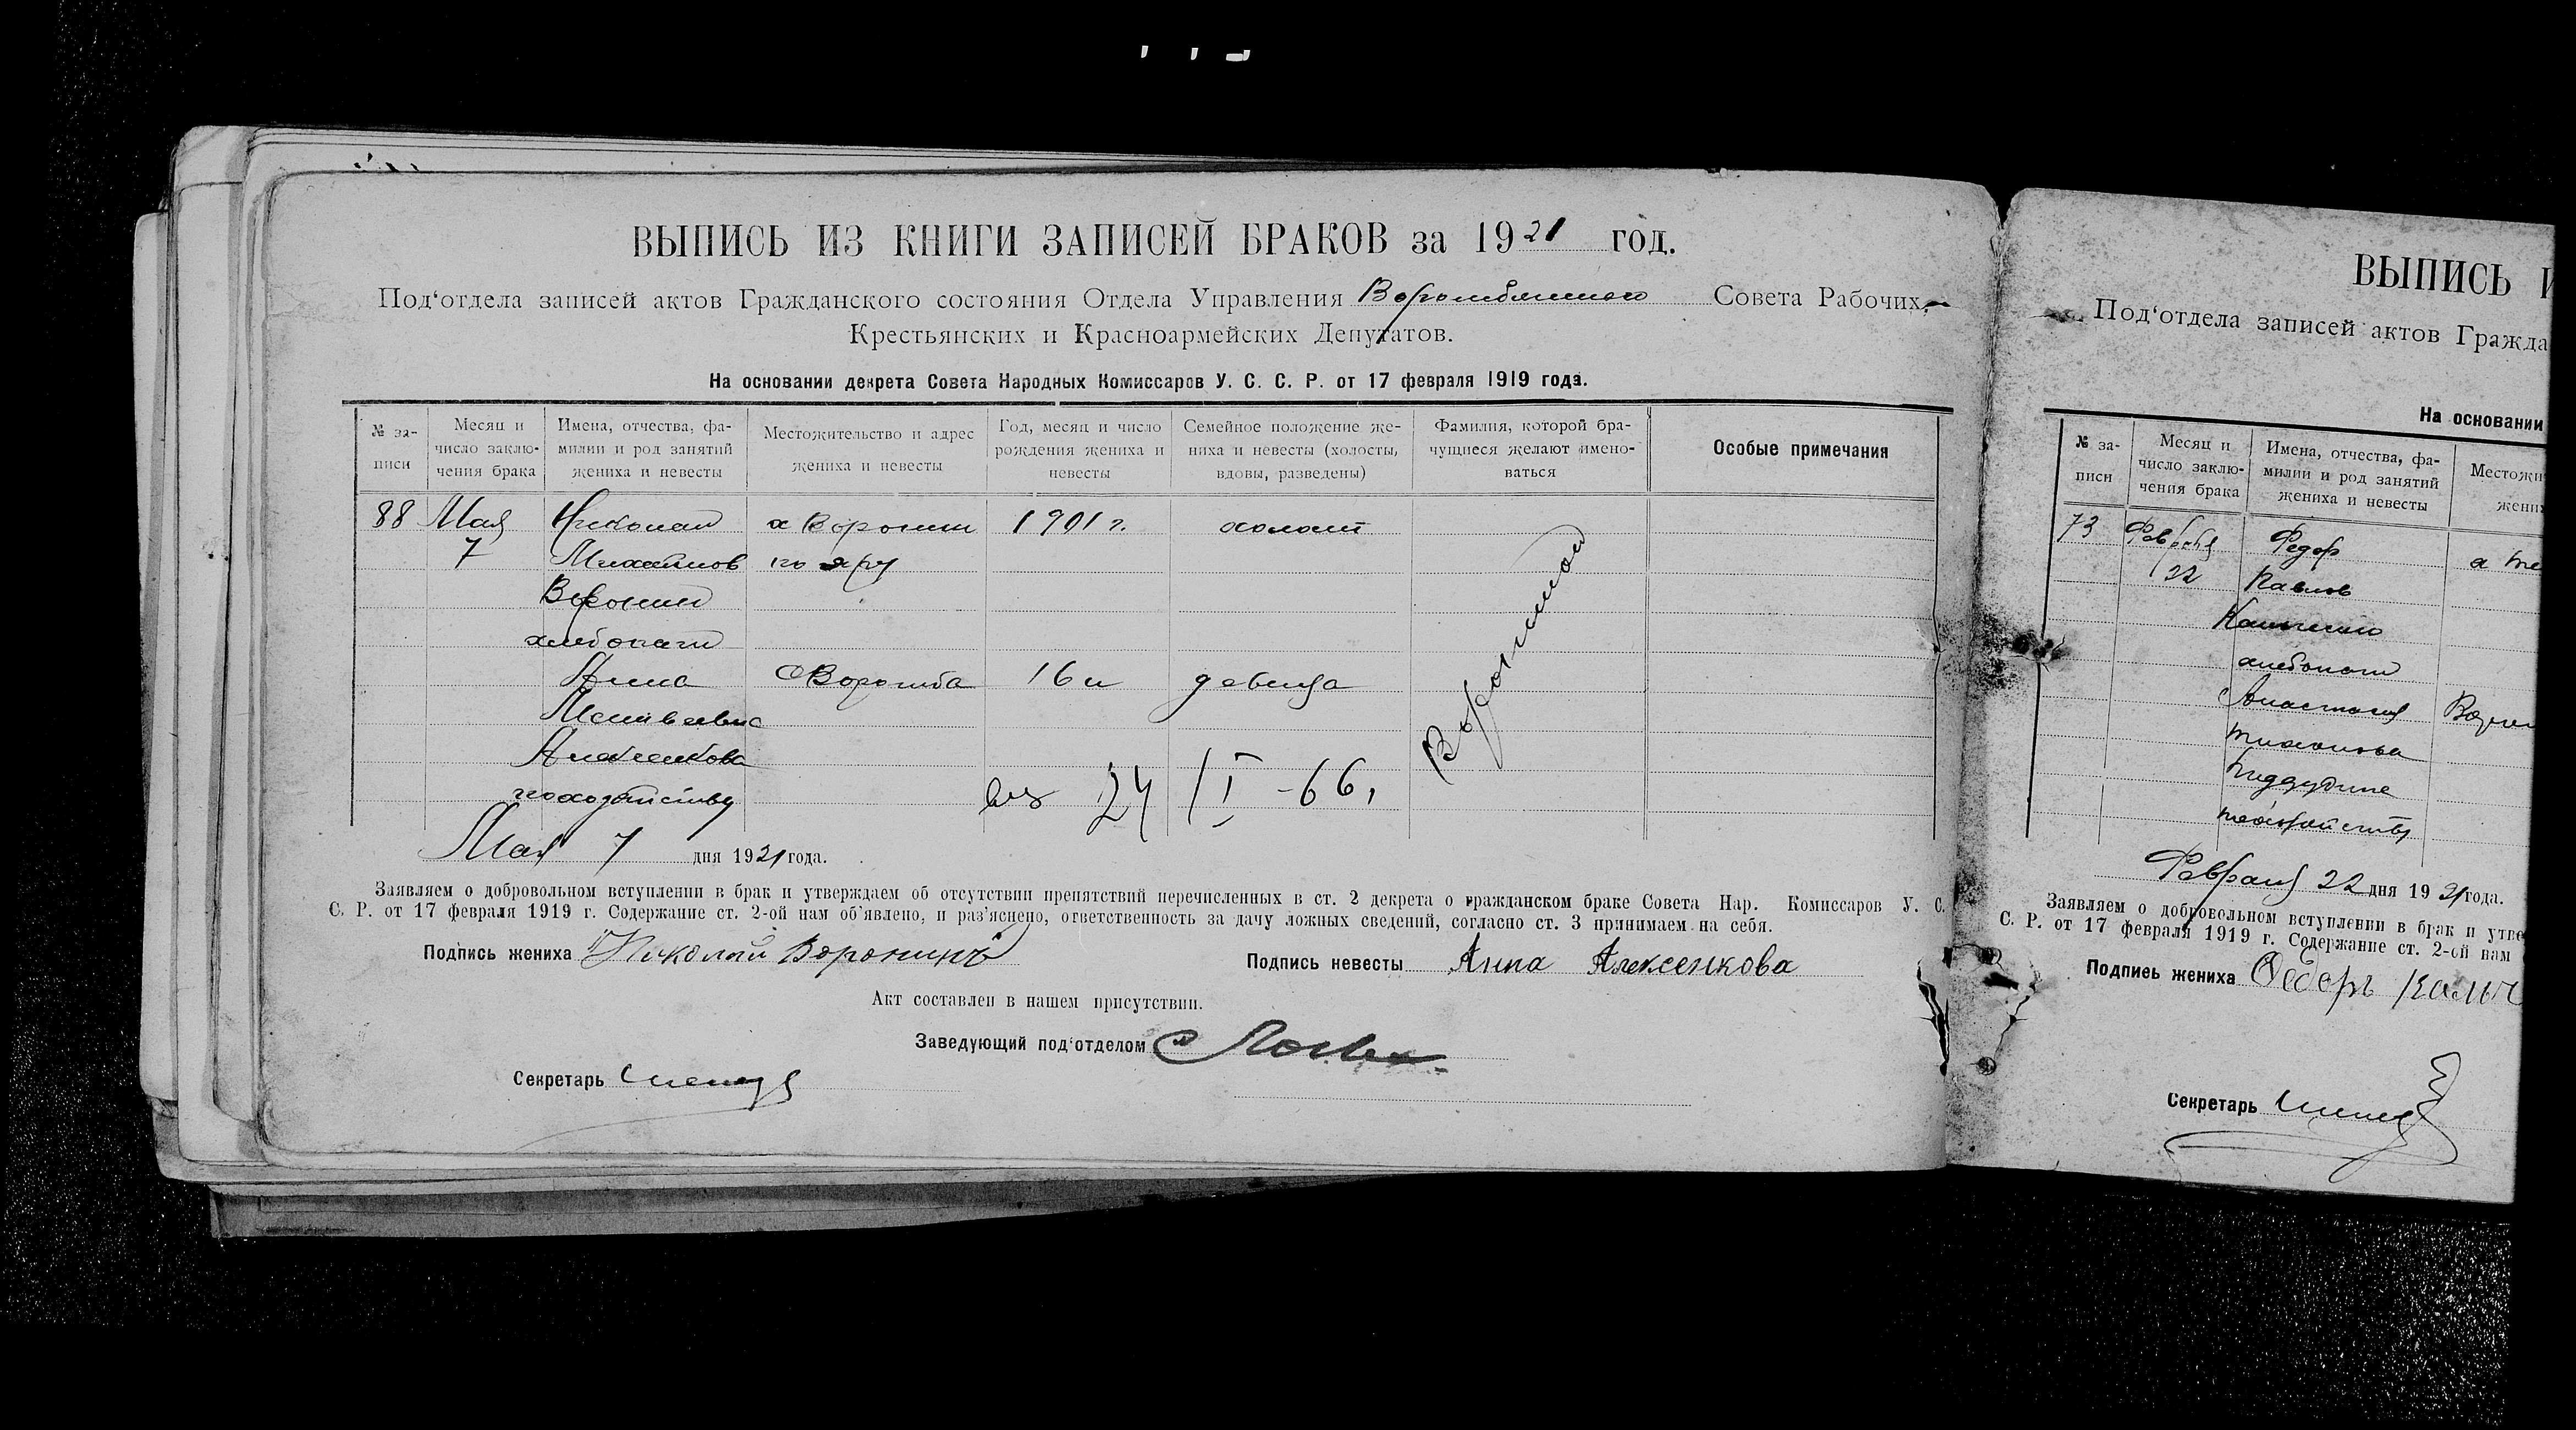 ВЫПИСЬ ИЗ КНИГИ ЗАПИСЕЙ БРАКОВ за 1921 год.
Под‘отдела записей актов Гражданского состояния Отдела Управления Ворожбянского Совета Рабочих,
Крестьянских и Красноармейских Депутатов.
На основании декрета Совета Народных Комиссаров У. С. С. Р. от 17 февраля 1919 года.
№ за-
писи
Месяц и
число заклю-
чения брака
Имена, отчества, фа-
милии и род занятий
жениха и невесты
Местожительство и адрес
жениха и невесты
Год, месяц и число
рождения жениха и
невесты
Семейное положение же-
ниха и невесты (холосты,
вдовы, разведены)
Фамилия, которой бра-
чущиеся желают имено-
ваться
Особые примечания
88 Мая Николай х Воронин 1901 г. холост
7 Михайлов
Воронин
хлебопаш
Анна Ворожба 16 л девица
Матвеевна
Алексенкова
похозяйству
24 / I - 66,
Мая 7 дня 1921 года.
Заявляем о добровольном вступлении в брак и утверждаем об отсутствии препятствий перечисленных в ст. 2 декрета о гражданском браке Совета Нар. Комиссаров У. С.
С. Р. от 17 февраля 1919 г. Содержание ст. 2-ой нам об‘явлено, и раз‘яснено, ответственность за дачу ложных сведений, согласно ст. 3 принимаем на себя.
Подпись жениха Николай Воронинъ Подпись невесты Анна Алексенкова
Акт составлен в нашем присутствии.
Заведующий под‘отделом
Секретарь
ВЫПИСЬ И
Под‘отдела записей актов Гражда
На основании
№ за-
писи
Месяц и
число заклю-
чения брака
Имена, отчества, фа-
милии и род занятий
жениха и невесты
Местожи
жени
73 Февраля Федор
22 Павлов
хлебопаш
Анастасия
Тихонова
Поддубная
Февраля 22 дня 1921 года.
Заявляем о добровольном вступлении в брак и утве
С. Р. от 17 февраля 1919 г. Содержание ст. 2-ой нам
Подпись жениха Федоръ Калыч
Секретарь